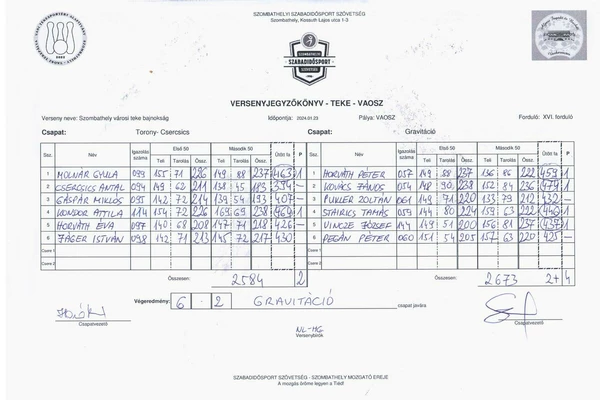 SZOMBATHELYI SZABADIDŐSPORT SZÖVETSÉG
Szombathely, Kossuth Lajos utca 1-3
SZOMBATHELYI
SZABADIDŐSPORT
SZÖVETSÉG
VERSENYJEGYZŐKÖNYV - TEKE - VAOSZ
Verseny neve: Szombathelyi városi teke bajnokság Időpontja: 2024.01.23 Pálya: VAOSZ Forduló: XVI. forduló
Csapat: Torony- Csercsics Csapat: Gravitáció
Ssz. Név Igazolás száma Első 50 Második 50 Ütött fa P Ssz. Név Igazolás száma Első 50 Második 50 Ütött fa P
Teli Tarolás Össz. Teli Tarolás Össz. Teli Tarolás Össz. Teli Tarolás Össz.
1 MOLNÁR GYULA 093 155 71 226 149 88 237 463 1 1 HORVÁTH PÉTER 057 149 88 237 136 86 222 459 1
2 CSERCSICS ANTAL 094 149 62 211 138 45 183 394 - 2 KOVÁCS JÁNOS 054 148 90 238 152 84 236 474 1
3 GÁSPÁR MIKLÓS 095 142 72 214 139 54 193 407 - 3 FULLER ZOLTÁN 061 149 71 220 133 79 212 432 -
4 ATTILA 114 154 72 226 169 69 238 464 1 4 TAMÁS 059 144 80 224 159 63 222 446 1
5 HORVÁTH ÉVA 097 140 68 208 147 71 218 426 - 5 VINCZE JÓZSEF 144 149 51 200 156 81 237 437 1
6 JÁGER ISTVÁN 098 142 71 213 145 72 217 430 6 PEGÁN PÉTER 060 151 54 205 157 63 220 425 -
Csere 1 Csere 1
Csere 2 Csere 2
Összesen: 2584 2 Összesen: 2673 2+ 4
Végeredmény: 6 - 2 GRAVITÁCIÓ csapat javára
Csapatvezető
NL-HG
Versenybírók
Csapatvezető
SZABADIDŐSPORT SZÖVETSÉG - SZOMBATHELY MOZGATÓ EREJE
A mozgás öröme legyen a Tiéd!